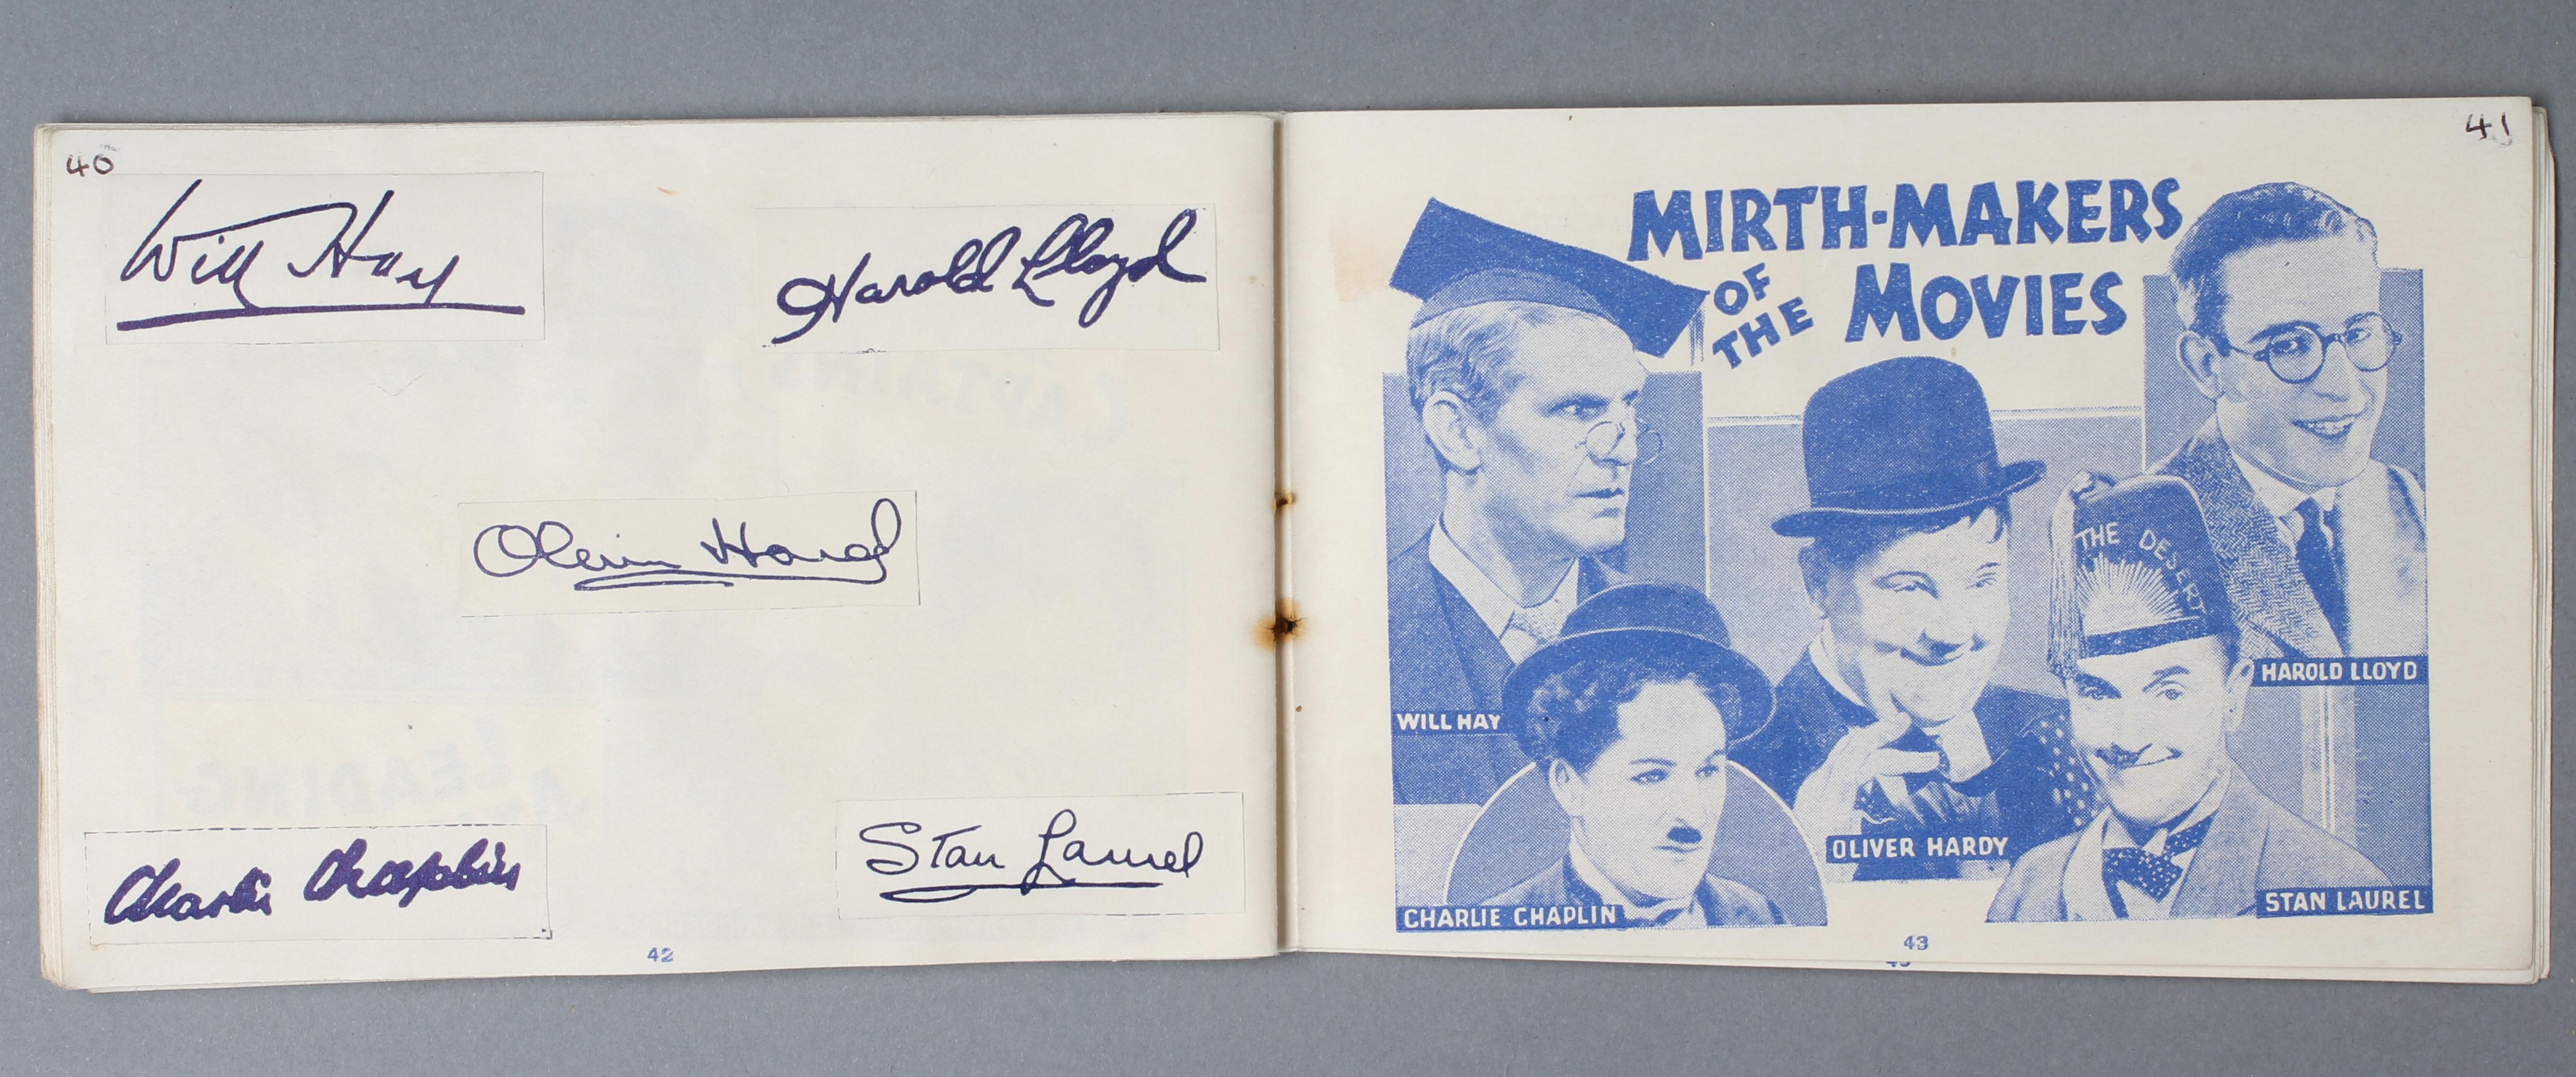 40
Will Hay
Harold Lloyd
Oliver Hardy
Charlie Chaplin
Stan Laurel
42
41
MIRTH-MAKERS
OF
THE
MOVIES
THE DESERT
HAROLD LLOYD
WILL HAY
OLIVER HARDY
CHARLIE CHAPLIN
STAN LAUREL
43